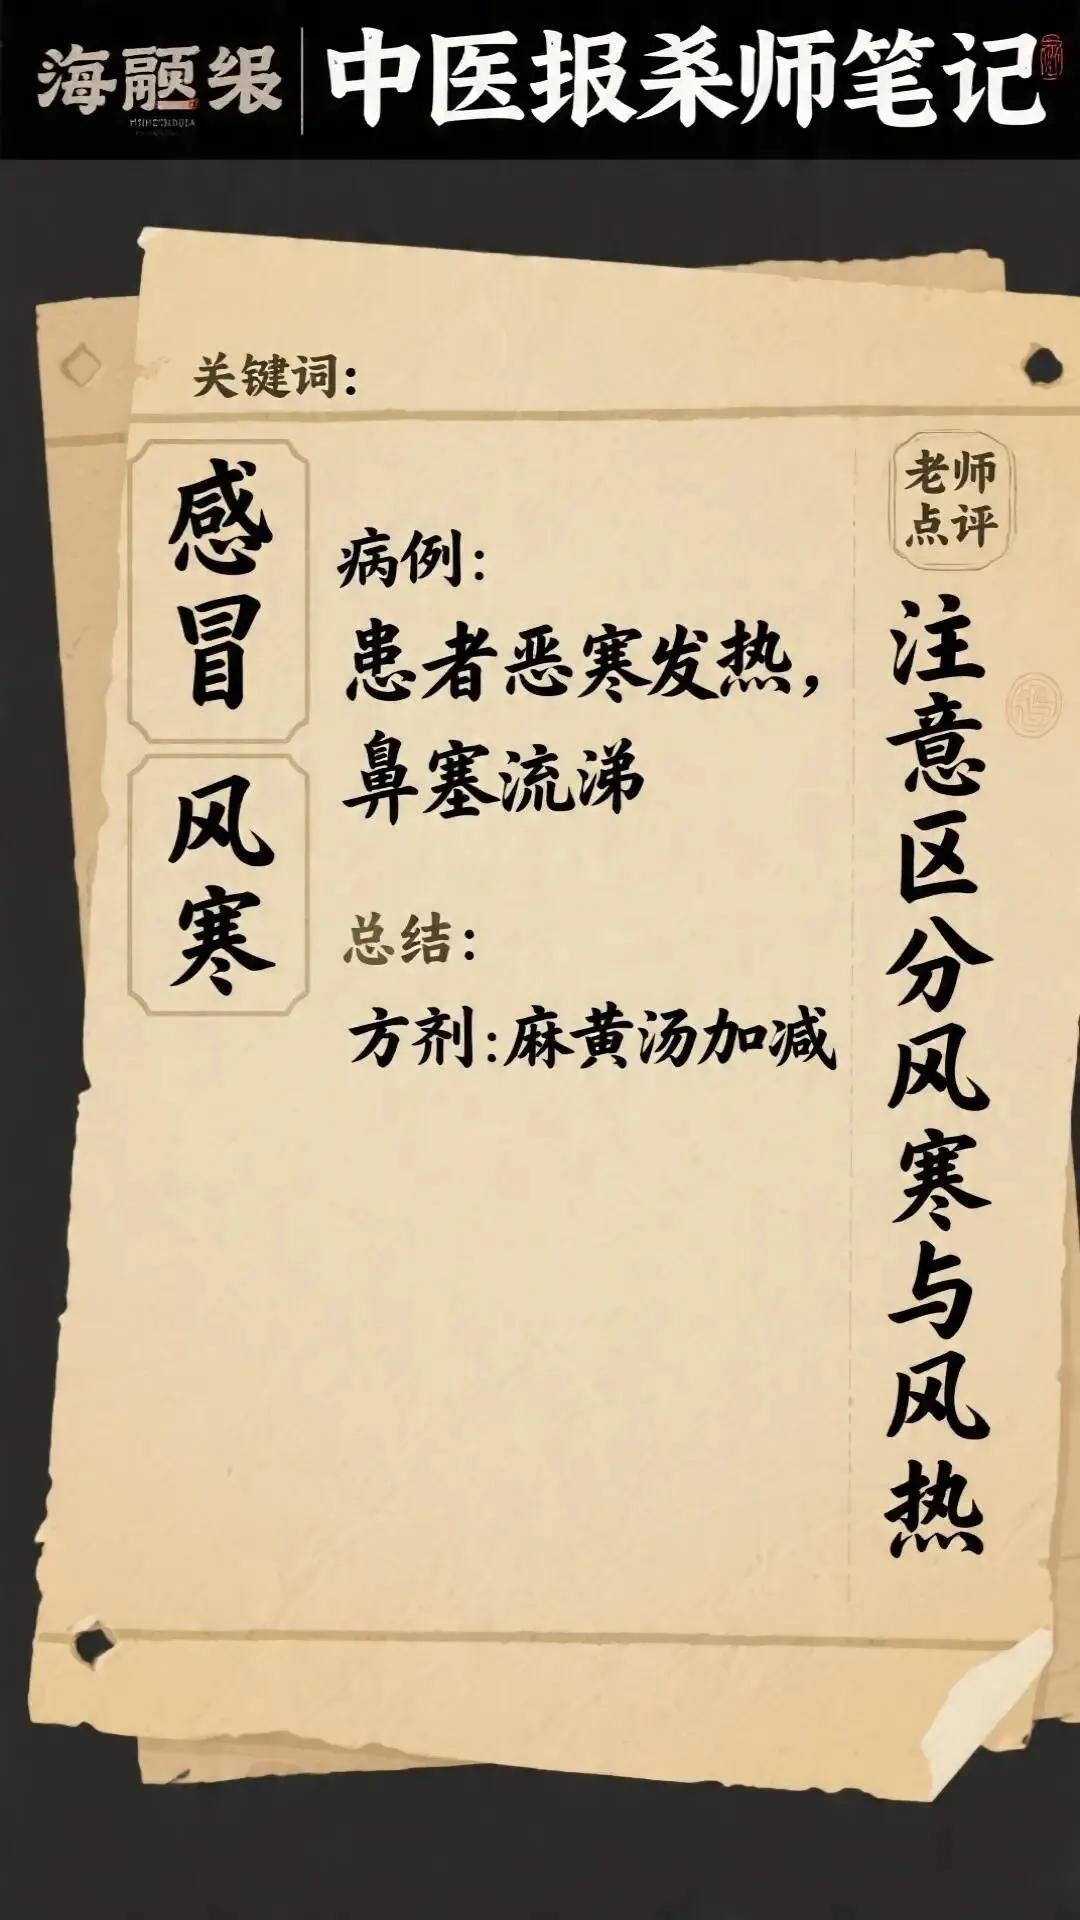 中医报杀师笔记
关键词：
感冒
风寒
病例：
患者恶寒发热，
鼻塞流涕
总结：
方剂：麻黄汤加减
老师
点评
注意区分风寒与风热